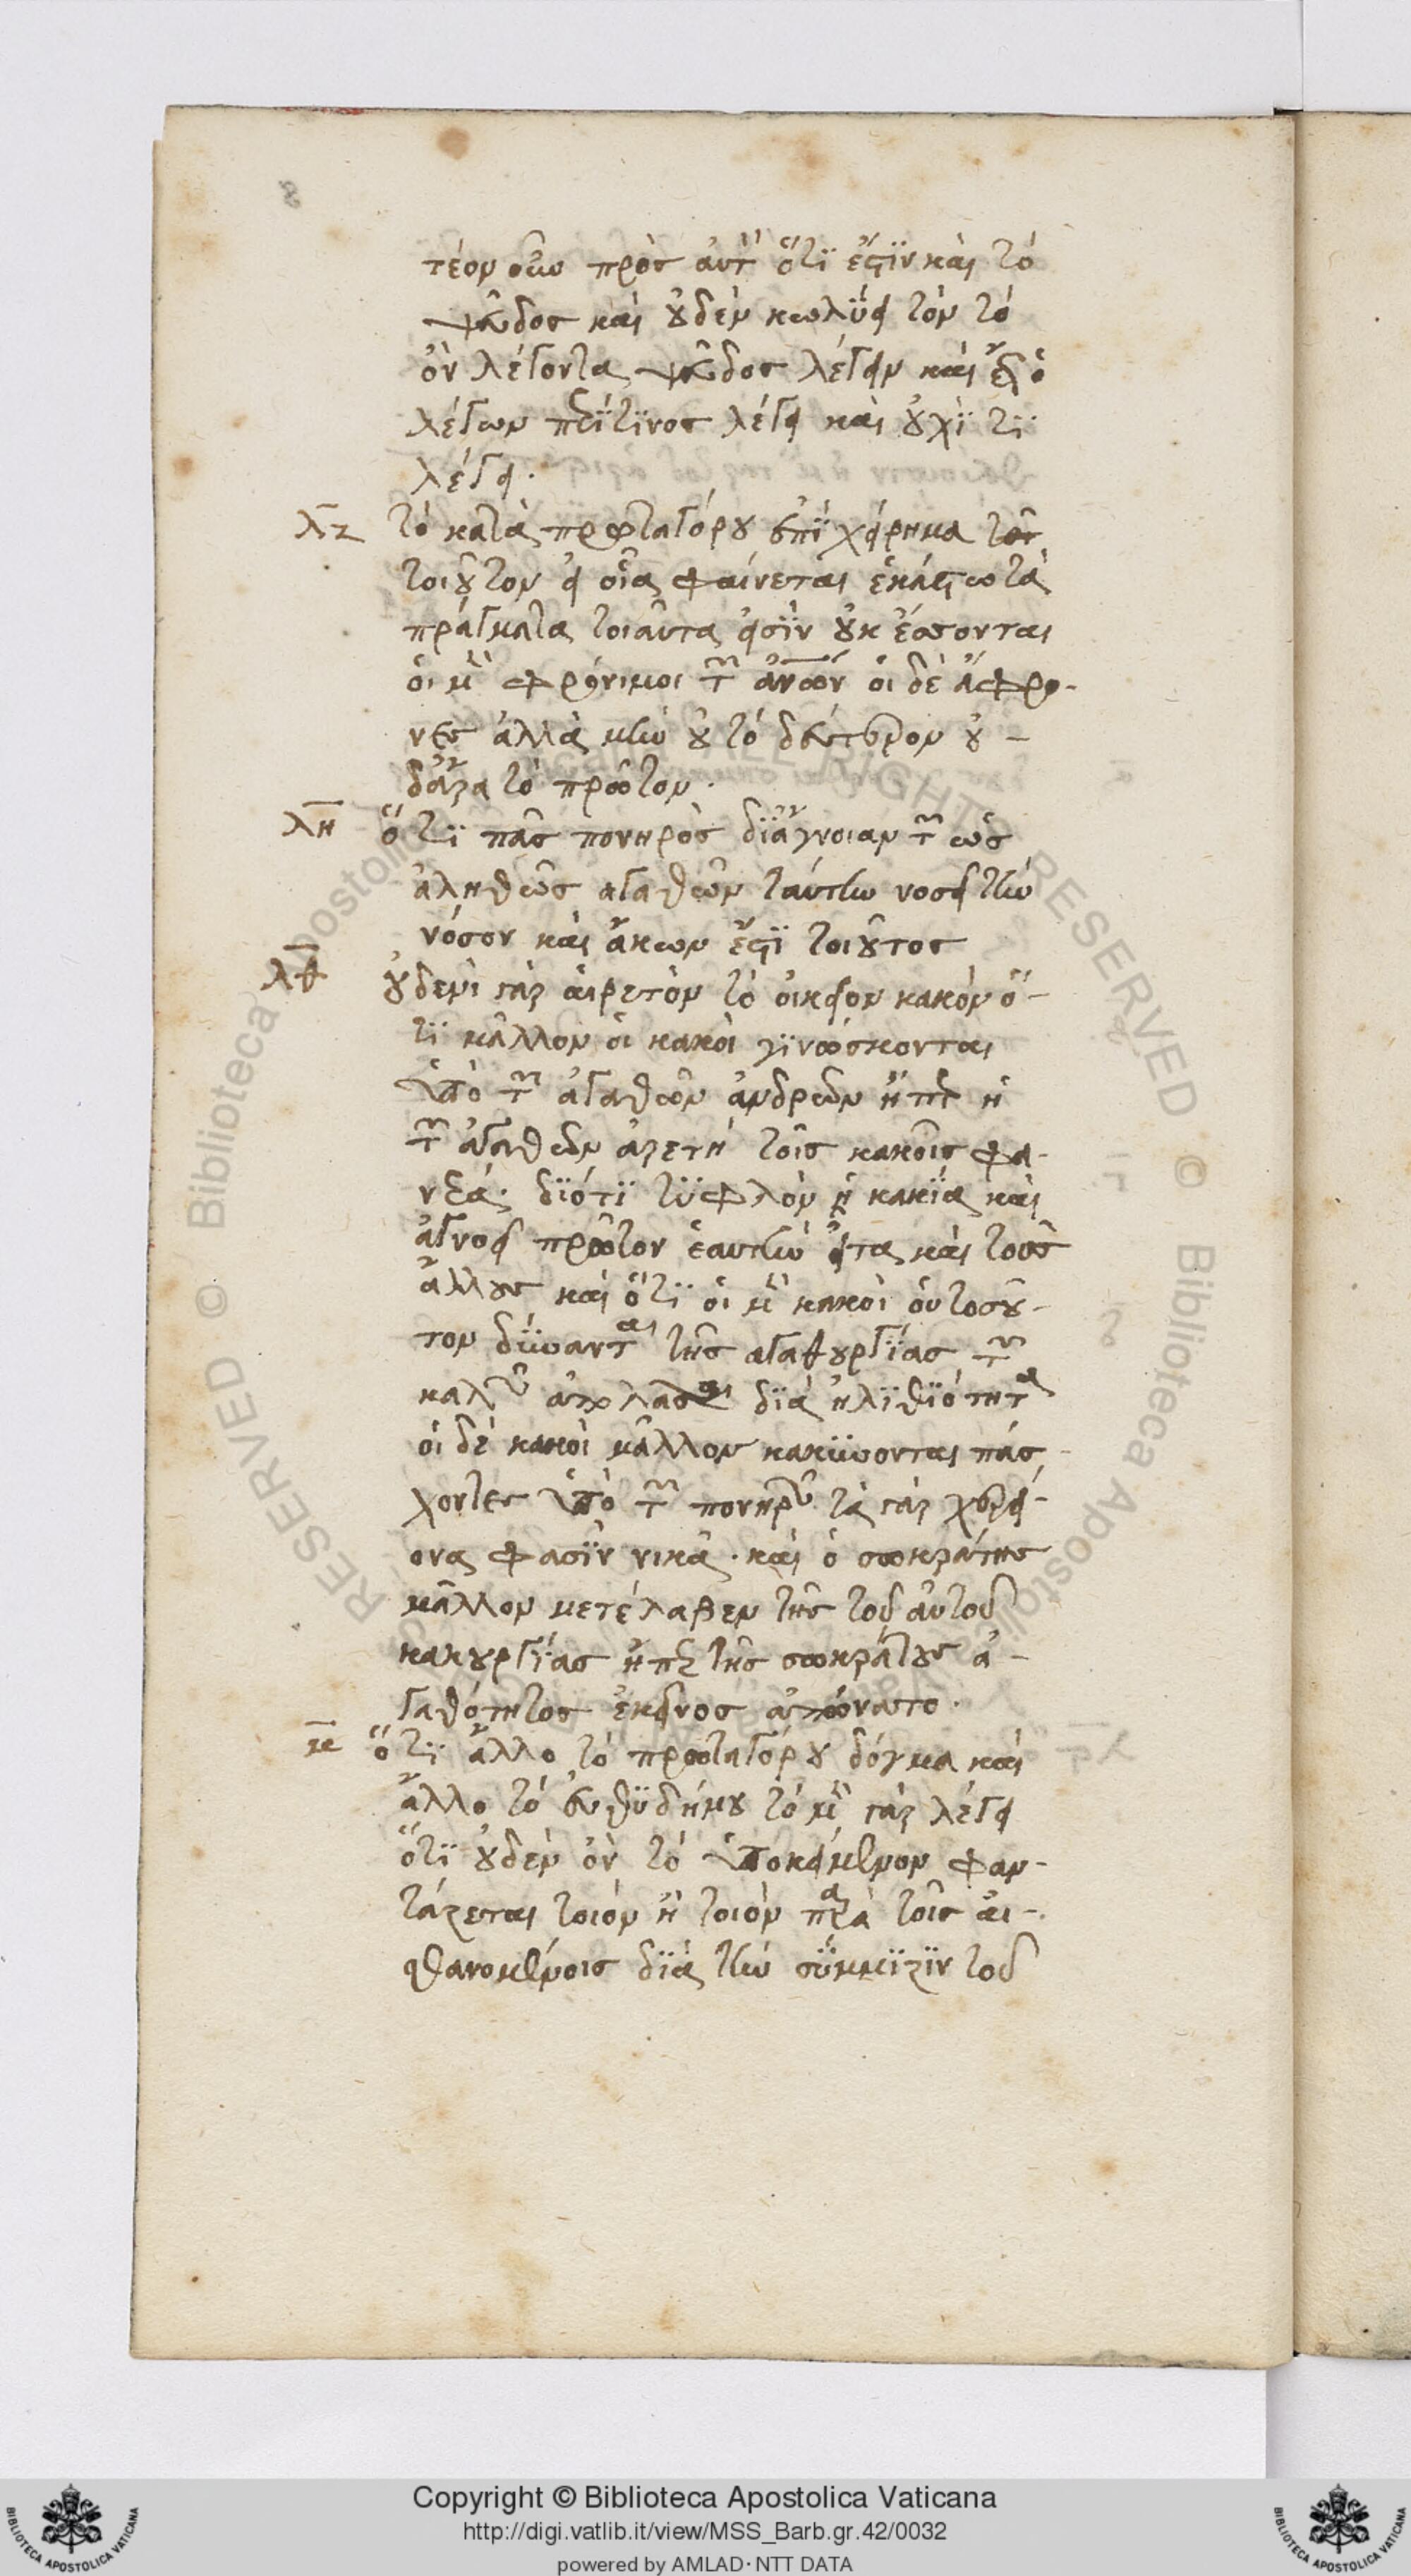 τέον οὖν πρὸς αὐτ ὅτι ἔστιν καὶ τὸ
ψεῦδος καὶ οὐδὲν κωλύει τὸν τὸ
ὂν λέγοντα ψεῦδος λέγειν καὶ γὰρ ὁ
λέγων περί τινος λέγει καὶ οὐχί τι
λέγει.
λζ τὸ κατὰ πρωταγόρου ἐπιχείρημα
τοιοῦτον εἰ οἷα φαίνεται ἑκάστω τὰ
πράγματα τοιαῦτα εἰσὶν οὐκ ἔσονται
οἱ μὲν φρόνιμοι τῶν ἀνων οἱ δὲ ἄφρο-
νες ἀλλὰ μὴν οὐ τὸ δεύτερον οὐ-
δ'ἄρα τὸ πρῶτον.
λη ὅτι πᾶς πονηρὸς δι' ἄγνοιαν τῶν ὡς
ἀληθῶς ἀγαθῶν ταύτην νοσεῖ τὴν
νόσον καὶ ἄκων ἐστὶ τοιοῦτος
λθ οὐδενὶ γὰρ αἱρετὸν τὸ οἰκεῖον κακὸν ὅ-
τι μᾶλλον οἱ κακοὶ γινώσκονται
ὑπὸ τῶν ἀγαθῶν ἀνδρῶν ἤπερ ἡ
τῶν ἀγαθῶν ἀρετὴ τοῖς κακοῖς φα-
νερά. διότι τυφλὸν ἡ κακία καὶ
ἀγνοεῖ πρῶτον ἑαυτὴν εἶτα καὶ τοὺς
ἄλλους καὶ ὅτι οἱ μὲν κακοὶ οὐ τοσοῦ-
τον δύνανται τῆς ἀγαθουργίας τῶν
καλῶν ἀπολαῦσαι διὰ ἠλιθιότητα
οἱ δὲ κακοὶ μᾶλλον κακύνονται πάσ
χοντες ὑπὸ τῶν πονηρῶν τὰ γὰρ χερεί-
ονα φασὶν νικᾶ. καὶ ὁ σωκράτης
μᾶλλον μετέλαβεν τῆς τοῦ αὐτοῦ
κακουργίας ἤπερ τῆς σωκράτους ἀ-
γαθότητος ἐκεῖνος ἀπώνατο.
μ ὅτι ἄλλο τὸ πρωταγόρου δόγμα καὶ
ἄλλο τὸ εὐθυδήμου τὸ μὲν γὰρ λέγει
ὅτι οὐδὲν ὂν τὸ ὑποκείμενον φαν-
τάζεται τοιὸν ἢ τοιὸν παρὰ τοῖς αἰ-
σθανομένοις διὰ τὴν σύμμιξιν τοῦ
Copyright © Biblioteca Apostolica Vaticana
http://digi.vatlib.it/view/MSS_Barb.gr.42/0032
powered by AMLAD·NTT DATA